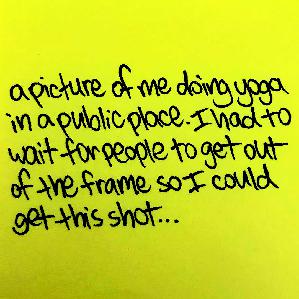 a picture of me doing yoga
in a public place. I had to
wait for people to get out
of the frame so I could
get this shot...